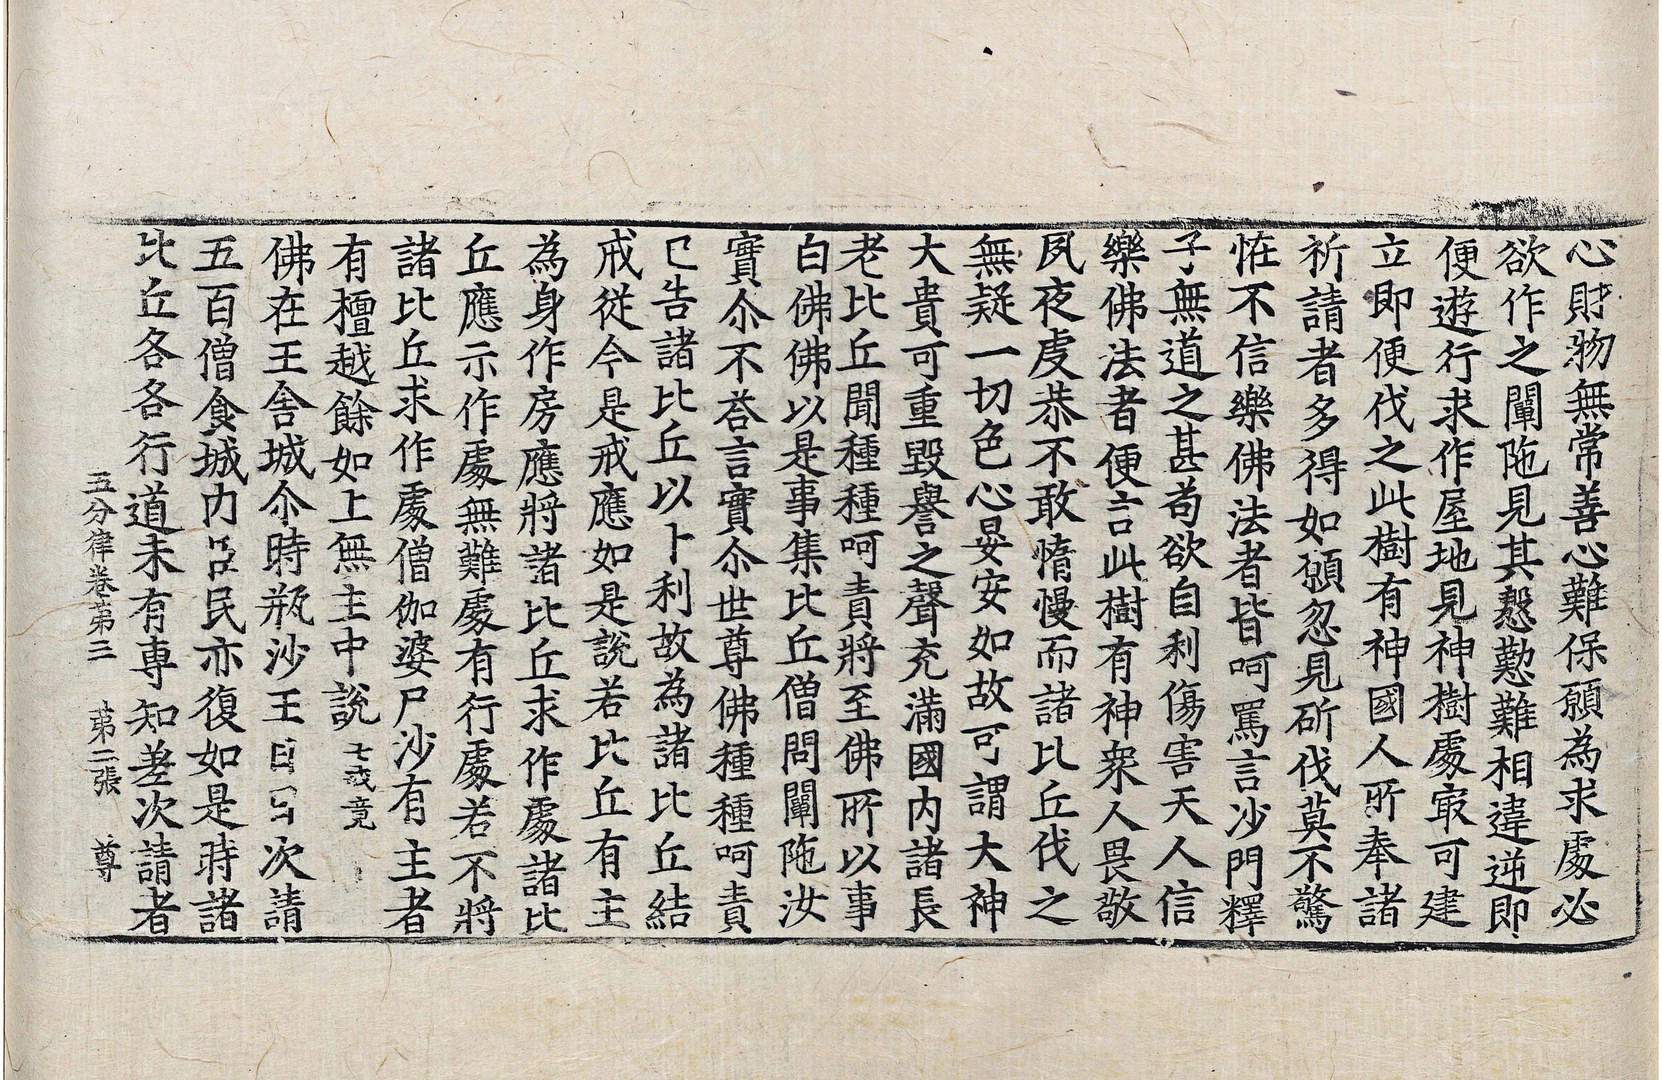 心財物無常善心難保願為求處必
欲作之闡陁見其慇懃難相違逆即
便遊行求作屋地見神樹處㝡可建
立即便伐之此樹有神國人所奉諸
祈請者多得如願忽見斫伐莫不驚
恠不信樂佛法者皆呵罵言沙門釋
子無道之甚苟欲自利傷害天人信
樂佛法者便言此樹有神衆人畏敬
夙夜虔恭不敢惰慢而諸比丘伐之
無疑一切色心晏安如故可謂大神
大貴可重毀譽之聲充滿國內諸長
老比丘聞種種呵責將至佛所以事
白佛佛以是事集比丘僧問闡陁汝
實尒不荅言實尒世尊佛種種呵責
已告諸比丘以十利故為諸比丘結
戒從今是戒應如是說若比丘有主
為身作房應將諸比丘求作處諸比
丘應示作處無難處有行處若不將
諸比丘求作處僧伽婆尸沙有主者
有檀越餘如上無主中說七戒竟
佛在王舍城尒時瓶沙王日日次請
五百僧食城內臣民亦復如是時諸
比丘各各行道未有專知差次請者
五分律卷第三 第二張 尊